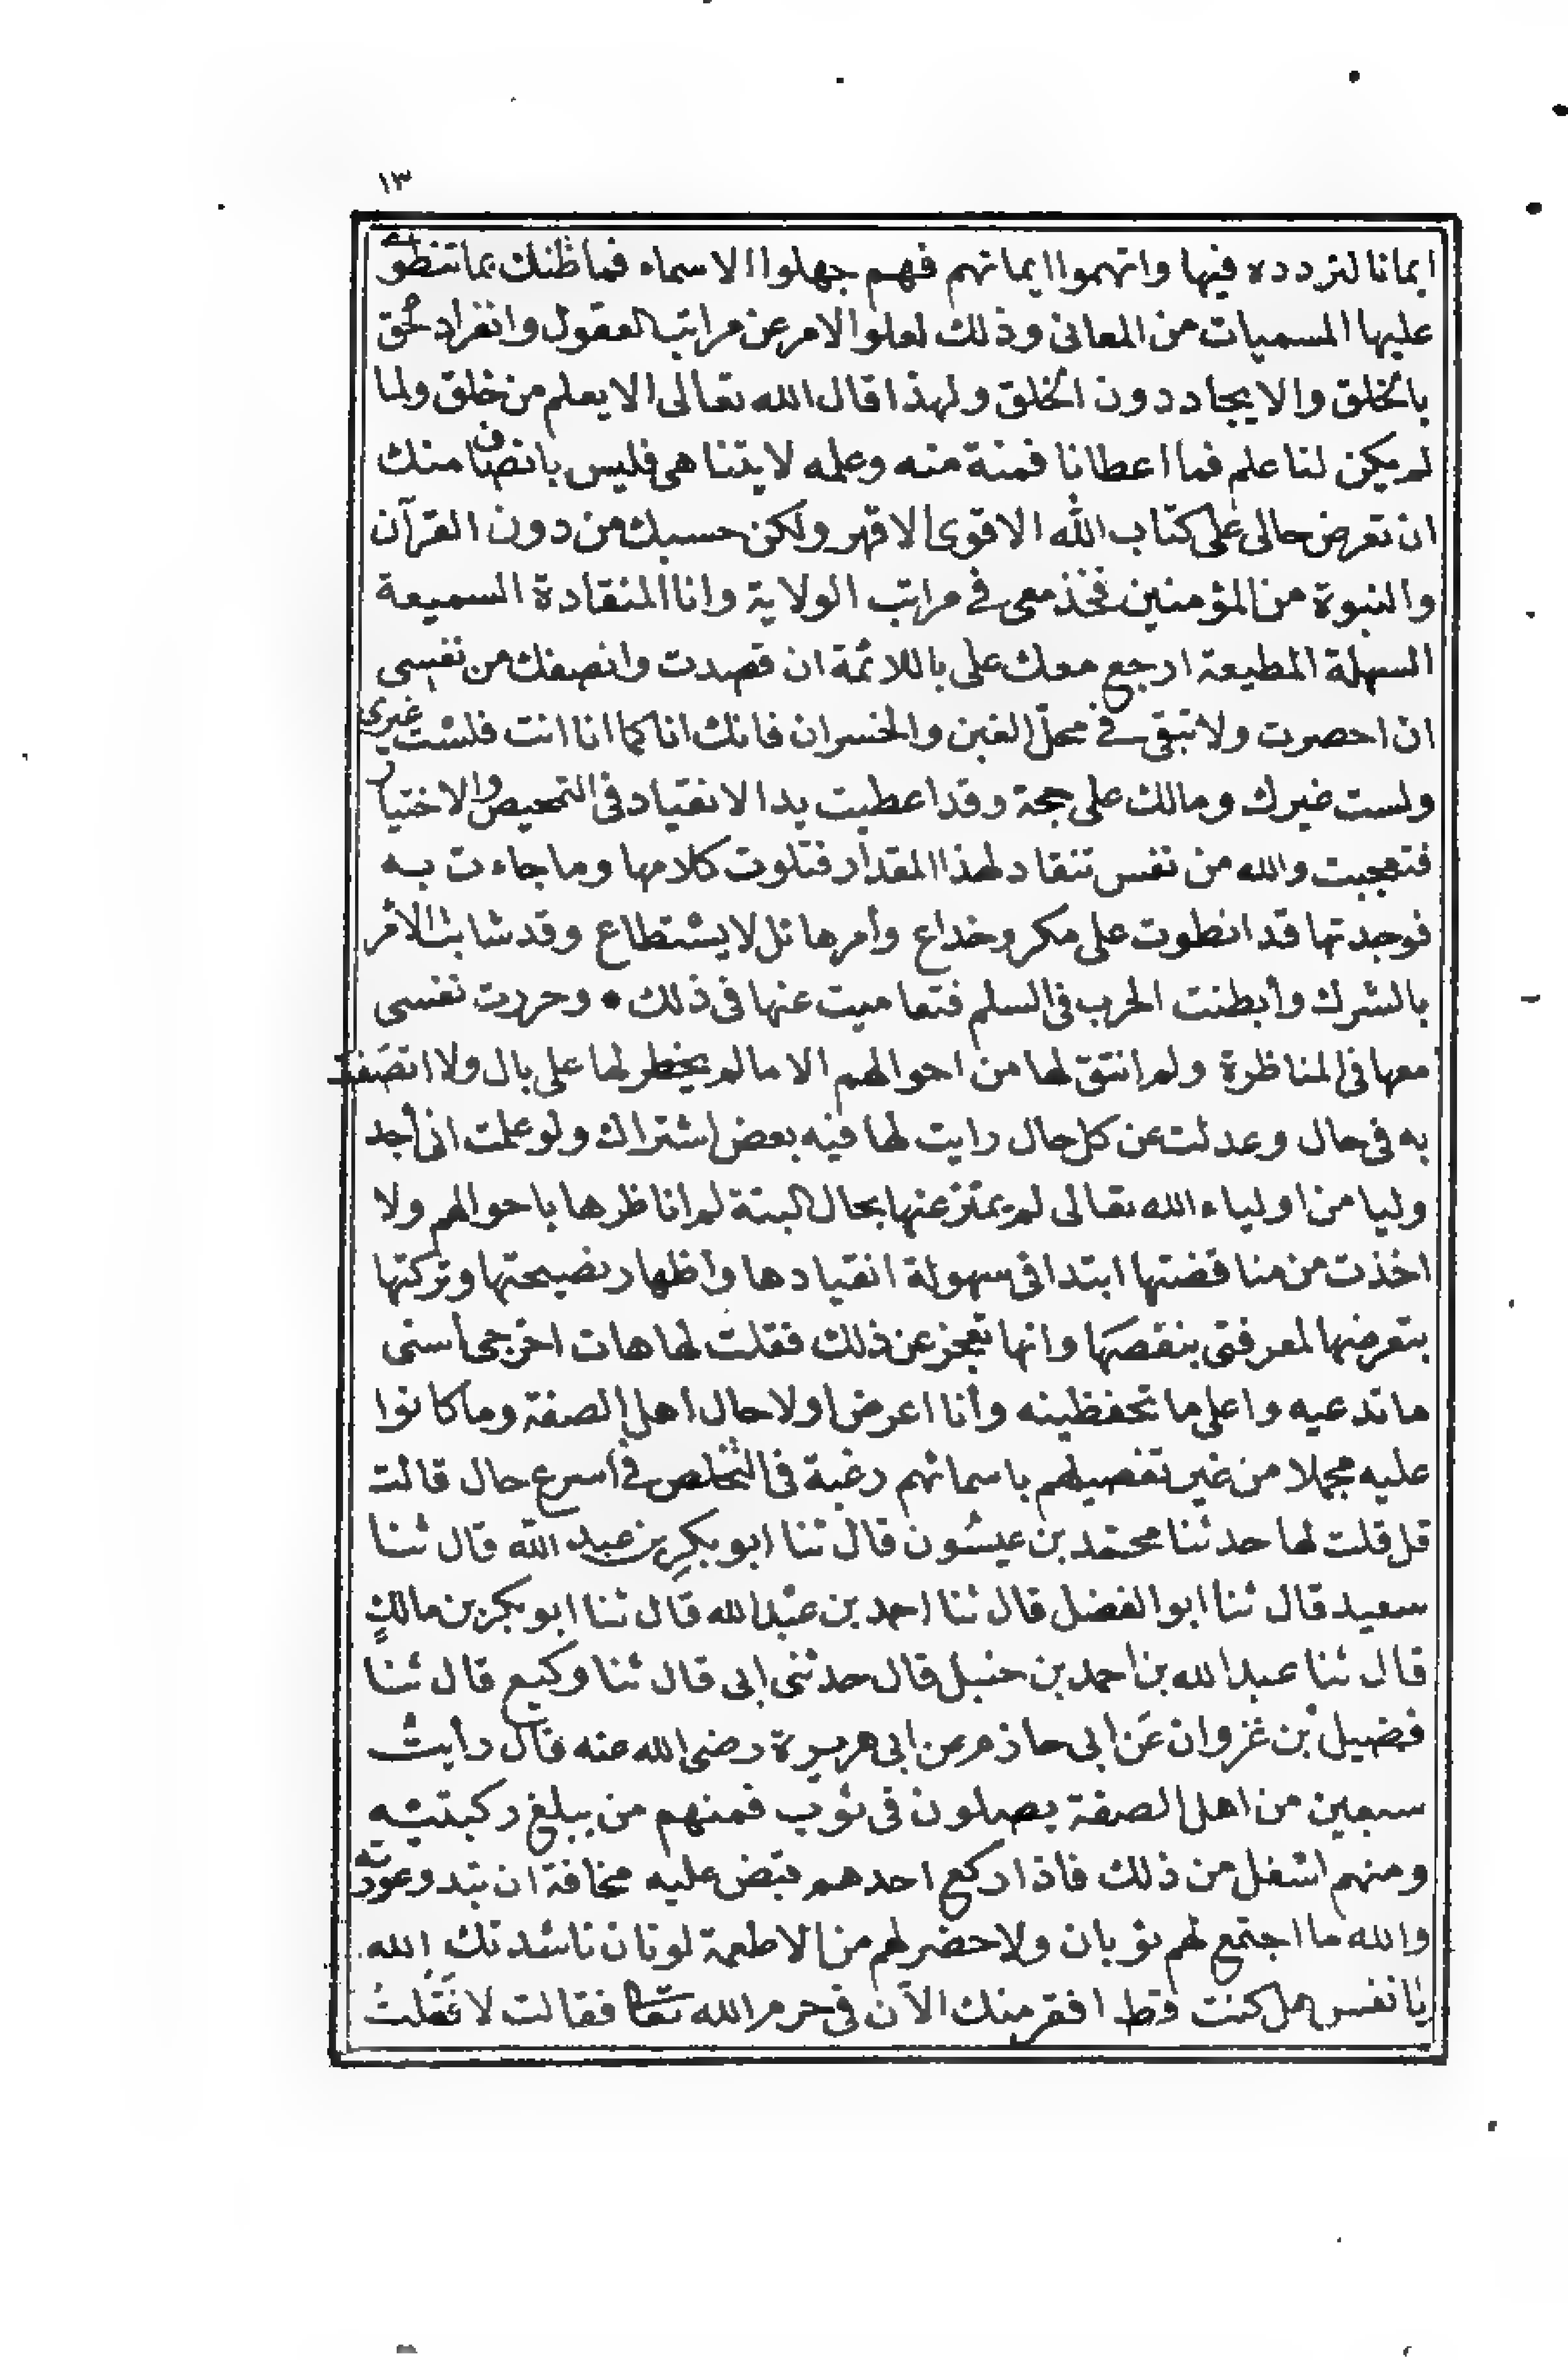 ١٣
ايمانا لتردده فيها واتهموا ايمانهم فهم جهلوا الاسماء فما ظنك بما تنطوى
عليها المسميات من المعانى وذلك لعلو الامر عن مراتب العقول وانفراد الحق
بالخلق والايجاد دون الخلق ولهذا قال الله تعالى الا يعلم من خلق ولما
لم يكن لنا علم فما اعطانا فمنة منه وعلمه لا يتناهى فليس بانصاف منك
ان تعرض حالى على كتاب الله الاقوى الاقهر ولكن حسبك من دون القرآن
والنبوة من المؤمنين فخذ معى فى مراتب الولاية وانا المنقادة السميعة
السهلة المطيعة ارجع معك على باللائمة ان قصدت وانصفك من نفسى
ان احصرت ولا تبقى فى محل الغبن والخسران فانك انا كما انا انت فلست غيرى
ولست غيرك ومالك على حجة وقد اعطيت يد الانقياد فى التمحيص والاختيار
فتعجبت والله من نفس تنقاد لهذا المقدار فتلوت كلامها وما جاءت به
فوجدتها قد انطوت على مكر وخداع وأمر هائل لا يستطاع وقد شابت الأمر
بالشرك وأبطنت الحرب فى السلم فتعاميت عنها فى ذلك • وحررت نفسى
معها فى المناظرة ولم انتق لها من احوالهم الا ما لم يخطر لها على بال ولا اتصفت
به فى حال وعدلت عن كل حال رايت لها فيه بعض اشتراك ولو علمت انى أجد
وليا من اولياء الله تعالى لم يمتز عنها بحال البتة لم اناظرها باحوالهم ولا
اخذت من مناقضتها ابتدا فى سهولة انقيادها واظهار نصيحتها وتركتها
بتعرضها لمعرفتى بنقصها وانها تعجز عن ذلك فقلت لها هات اخرجى أسنى
ما تدعيه واعلى ما تحفظينه وأنا اعرض اولا حال أهل الصفة وما كانوا
عليه مجملا من غير تفصيلهم باسمائهم رغبة فى التخلص فى أسرع حال قالت
قل قلت لها حدثنا محمد بن عيشون قال ثنا ابو بكر بن عبد الله قال ثنا
سعيد قال ثنا ابو الفضل قال ثنا احمد بن عبد الله قال ثنا ابو بكر بن مالك
قال ثنا عبد الله بن احمد بن حنبل قال حدثنى ابى قال ثنا وكيع قال ثنا
فضيل بن غزوان عن ابى حازم عن ابى هريرة رضى الله عنه قال رأيت
سبعين من اهل الصفة يصلون فى ثوب فمنهم من يبلغ ركبتيه
ومنهم اسفل من ذلك فاذا ركع احدهم قبض عليه مخافة ان تبدو عورته
والله ما اجتمع لهم ثوبان ولا حضر لهم من الاطعمة لونان ناشدتك الله
يا نفس هل كنت قط افقر منك الآن فى حرم الله تعالى فقالت لا فقلت